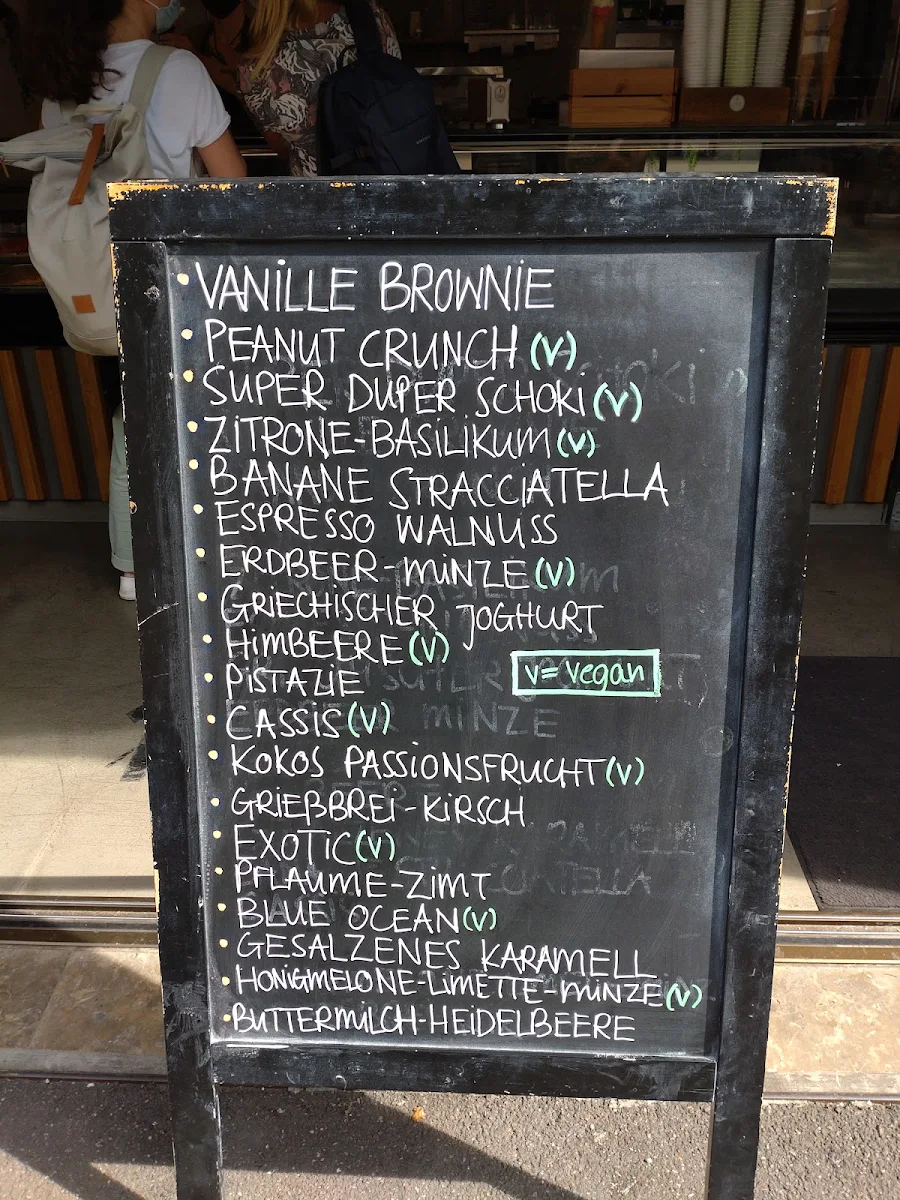 • VANILLE BROWNIE
• PEANUT CRUNCH (V)
• SUPER DUPER SCHOKI (V)
• ZITRONE-BASILIKUM (V)
• BANANE STRACCIATELLA
• ESPRESSO WALNUSS
• ERDBEER-MINZE (V)
• GRIECHISCHER JOGHURT
• HIMBEERE (V)
• PISTAZIE
v = vegan
• CASSIS (V)
• KOKOS PASSIONSFRUCHT (V)
• GRIEßBREI-KIRSCH
• EXOTIC (V)
• PFLAUME-ZIMT
• BLUE OCEAN (V)
• GESALZENES KARAMELL
• HONIGMELONE-LIMETTE-MINZE (V)
• BUTTERMILCH-HEIDELBEERE